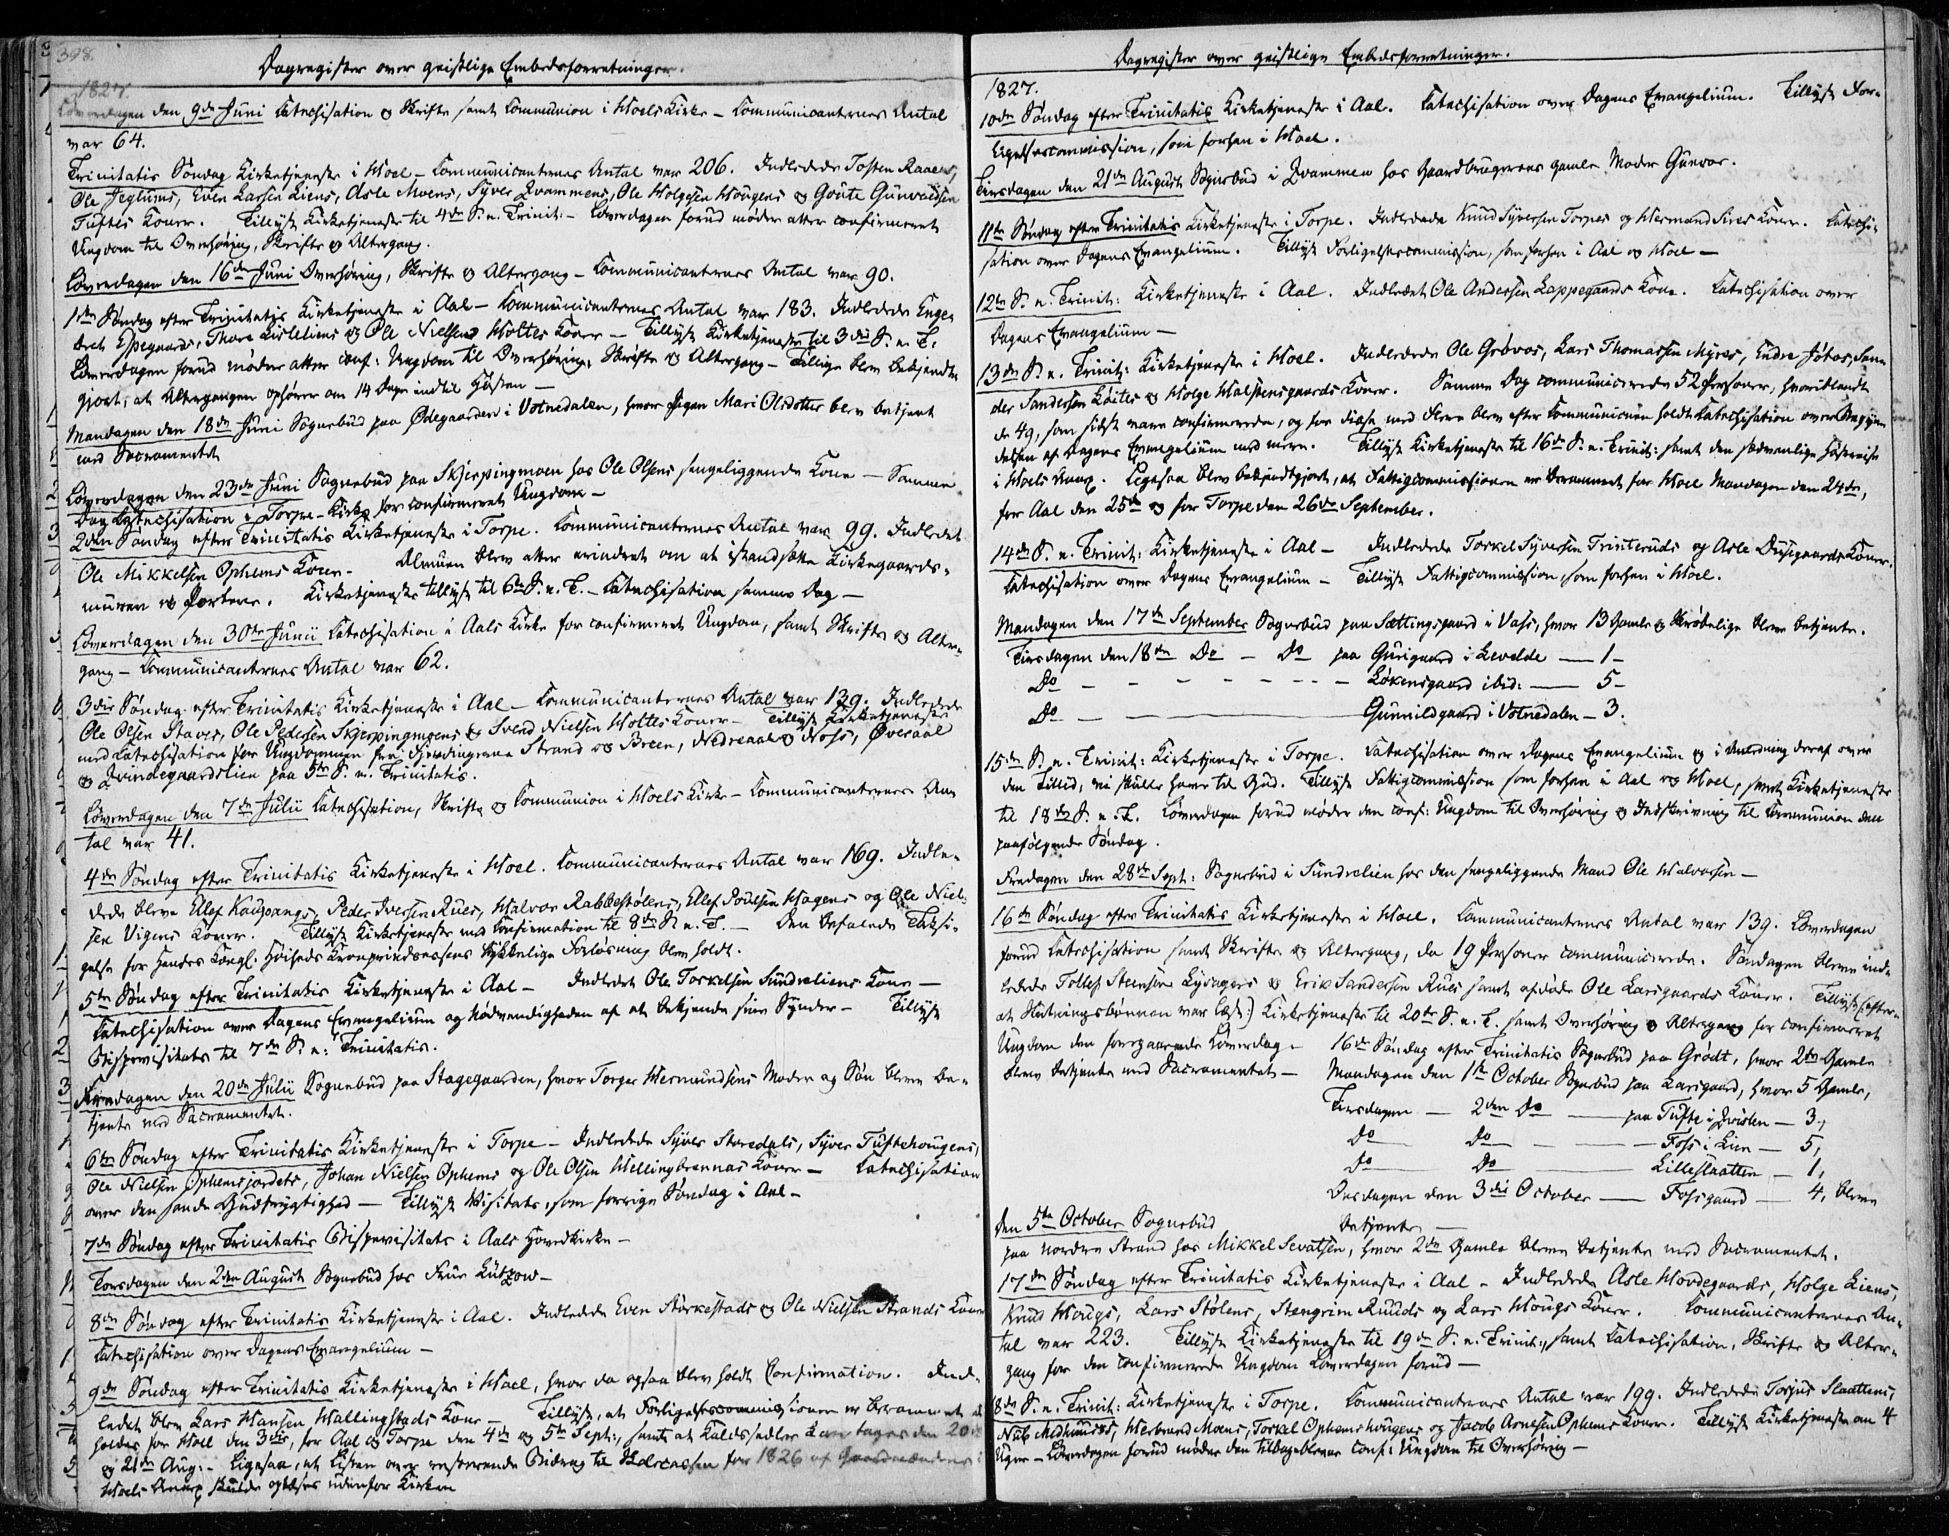 398.
Dagregister over geistlige Embedsforretninger.
1827.
Løverdagen den 9de Juni Catechisation og Skrifte samt Communion i Hoels Kirke – Communicanternes Antal
var 64.
Trinitatis Søndag Kirketjeneste i Hoel – Communicanternes Antal var 206. Indledede Tosten Raaens,
Ole Jeglums, Even Larsen Liens, Asle Moens, Syver Qvammens, Ole Holgesen Hougens og Goute Gunvaldsen
Tuftes Koner. Tillyst Kirketjeneste til 4de S. e. Trinit: – Løverdagen forud møder atter confirmeret
Ungdom til Overhøring, Skrifte og Altergang.
Løverdagen den 16de Juni Overhøring, Skrifte og Altergang – Communicanternes Antal var 90.
1ste Søndag efter Trinitatis Kirketjeneste i Aal – Communicanternes Antal var 183. Indledede Enge-
bret Espegaards, Thore Lisleliens og Ole Nielsens Holtes Koner – Tillyst Kirketjeneste til 3die S. e. T.
Løverdagen forud møder atter conf: Ungdom til Overhøring, Skrifte og Altergang – Tillige blev bekjendt-
gjort, at Altergangen ophører om 14 Dage indtil Høsten –
Mandagen den 18de Juni Sognebud paa Ødegaarden i Votnedalen, hvor Pigen Mari Olsdotter blev betjent
med Sacramentet
Løverdagen den 23de Juni Sognebud paa Skjerpingmoen hos Ole Olsens sengeliggende Kone – Samme
Dag Catechisation i Torpe-Kirke for confirmeret Ungdom –
2den Søndag efter Trinitatis Kirketjeneste i Torpe. Communicanternes Antal var 99. Indledet
Ole Mikkelsen Ophems Koner – Almuen blev atter erindret om at istandsætte Kirkegaards-
muren og Portene. Kirketjeneste tillyst til 6te S. e. T. – Catechisation samme Dag –
Løverdagen den 30te Junii Catechisation i Aals Kirke for confirmeret Ungdom, samt Skrifte og Alter-
gang – Communicanternes Antal var 62.
3die Søndag efter Trinitatis Kirketjeneste i Aal – Communicanternes Antal var 139. Indledede
Ole Olsen Staves, Ole Pedersen Skjerpingmoens og Svend Nielsen Holtes Koner – Tillyst Kirketjeneste
med Catechisation for Ungdommen fra Fjerdingerne Strand og Breen, Nedreaal og Noss, Øvreaal
og Qvindegaardslien paa 5te S. e. Trinitatis.
Løverdagen den 7de Julii Catechisation, Skrifte og Communion i Hoels Kirke – Communicanternes An-
tal var 41.
4de Søndag efter Trinitatis Kirketjeneste i Hoel. Communicanternes Antal var 169. Indle-
dede bleve Ellef Kaupangs, Peder Iversen Rues, Halvor Rabbestølens, Ellef Poulsen Hagens og Ole Niel-
sen Vigens Koner. Tillyst Kirketjeneste med Confirmation til 8de S. e. T. – Den befalede Taksi-
gelse for Hendes Kongl. Høiheds Kronprindsessens lykkelige Forløsning blev holdt.
5te Søndag efter Trinitatis Kirketjeneste i Aal – Indledet Ole Torkelsen Sundreliens Kone –
Catechisation over Dagens Evangelium og Nødvendigheden af at bekjende sine Synder – Tillyst
Bispevisitats til 7de S. e: Trinitatis.
Fredagen den 20de Julii Sognebud paa Stagegaarden, hvor Torger Hermundsens Moder og Søn bleve be-
tjente med Sacramentet.
6te Søndag efter Trinitatis Kirketjeneste i Torpe – Indledede Syver Storedals, Syver Tuftehougens,
Ole Nielsen Ophemsjordets, Johan Nielsen Ophems og Ole Olsen Hellingbrennas Koner – Catechisation
over den sande Gudfrygtighed – Tillyst Visitats, som forrige Søndag i Aal –
7de Søndag efter Trinitatis Bispevisitats i Aals Hovedkirke –
Torsdagen den 2den August Sognebud hos Frue Lützow –
8de Søndag efter Trinitatis Kirketjeneste i Aal. Indledede Even Størkestads og Ole Nielsen Strands Koner
Catechisation over Dagens Evangelium –
9de Søndag efter Trinitatis Kirketjeneste i Hoel, hvor da ogsaa blev holdt Confirmation. Ind-
ledet blev Lars Hansen Hallingstads Kone – Tillyst, at Forligelsescommissionen er berammet at
holdes for Hoel den 3die, for Aal og Torpe den 4de og 5te Sept:, samt at Kaldsedler kan tages den 20de
og 21de Aug: – Ligesaa, at Listen over resterende Bidrag til Skolecassen for 1826 af Gaardmændene i
Hoels Annex skulde oplæses udenfor Kirken
Dagregister over geistlige Embedsforretninger.
1827.
10de Søndag efter Trinitatis Kirketjeneste i Aal. Catechisation over Dagens Evangelium. Tillyst For-
ligelsescommission, som forhen i Hoel.
Tirsdagen den 21de August Sognebud i Qvammen hos Gaardbrugerens gamle Moder Gunvor.
11te Søndag efter Trinitatis Kirketjeneste i Torpe. Indledede Knud Syversen Torpes og Hermand Sires Koner. Catechi-
sation over Dagens Evangelium. Tillyst Forligelsescommission, som forhen i Aal og Hoel –
12te S. e. Trinit: Kirketjeneste i Aal. Indledet Ole Andersen Lappegaards Kone. Catechisation over
Dagens Evangelium –
13de S. e. Trinit: Kirketjeneste i Hoel. Indledede Ole Grøvos, Lars Thomassen Myres, Endre Jøtas, San-
der Sandersen Køites og Holge Halstensgaards Koner. Samme Dag communicerede 52 Personer, hvoriblandt
de 49, som sidst vare confirmerede, og for disse med Flere blev efter Communionen holdt Catechisation over Begyn-
delsen af Dagens Evangelium med mere. Tillyst Kirketjeneste til 16de S. e. Trinit: samt den sædvanlige Høstreise
i Hoels Annex. Ligesaa blev bekjendtgjort, at Fattigcommissionen er berammet for Hoel Mandagen den 24de,
for Aal den 25de og for Torpe den 26de September.
14de S. e. Trinit: Kirketjeneste i Aal – Indledede Torkel Syversen Trinteruds og Asle Dusegaards Koner.
Catechisation over Dagens Evangelium – Tillyst Fattigcommission, som forhen i Hoel.
Mandagen den 17de September Sognebud paa Sættingsgaard i Vass, hvor 13 Gamle og Skrøbelige bleve betjente.
Tirsdagen den 18de Do – Do paa Gurigaard i Levelde – 1 –
Do – – – Løkensgaard ibid: – 5 –
Do – – Gunnildgaard i Votnedalen – 3.
15de S. e. Trinit: Kirketjeneste i Torpe. Catechisation over Dagens Evangelium og i Anledning deraf over
den Tillid, vi skulle have til Gud. Tillyst Fattigcommission som forhen i Aal og Hoel, samt Kirketjeneste
til 18de S. e. T. Løverdagen forud møder den conf: Ungdom til Overhøring og Indskrivning til Communion den
paafølgende Søndag.
Fredagen den 28de Sept: Sognebud i Sundrelien hos den sengeliggende Mand Ole Halvorsen –
16de Søndag efter Trinitatis Kirketjeneste i Hoel. Communicanternes Antal var 139. Løverdagen
forud Catechisation samt Skrifte og Altergang, da 19 Personer communicerede. Søndagen bleve ind-
ledede Tollef Steensen Lysagers og Erik Sandersen Rues samt afdøde Ole Larsgaards Koner. Tillyst (efter-
at Slutningsbønnen var læst:) Kirketjeneste til 20de S. e. T. samt Overhøring og Altergang for confirmeret
Ungdom den foregaaende Løverdag – 16de Søndag efter Trinitatis Sognebud paa Grødt, hvor 2de Gamle
bleve betjente med Sacramentet – Mandagen den 1ste October Sognebud paa Larsgaard, hvor 5 Gamle,
Tirsdagen – 2den Do – paa Tufte i – 3,
Do Do – Foss i Lien – 5,
Do Do – Lilleslaatten – 1,
Onsdagen den 3die October – Fossgaard – 4, bleve
betjente –
Den 5te October Sognebud
paa nordre Strand hos Mikkel Sevatsen, hvor 2de Gamle bleve betjente med Sacramentet.
17de Søndag efter Trinitatis Kirketjeneste i Aal – Indledede Asle Hovdegaards, Holge Liens,
Knud Hougs, Lars Stølens, Stengrim Ruuds og Lars Hougs Koner. Communicanternes An-
tal var 223. Tillyst Kirketjeneste til 19de S. e. Trinit:, samt Catechisation, Skrifte og Alter-
gang for den confirmerede Ungdom Løverdagen forud –
18de S. e. Trinit: Kirketjeneste i Torpe. Communicanternes Antal var 199. Indledede Torjus Slaattens,
Nils Medhuuses, Herbrand Moens, Torkel Ophemshougens og Jacob Arnesen Ophems Koner. Tillyst Kirketjeneste om 4
Uger – Løverdagen forud møder den tilbageblevne conf: Ungdom til Overhøring –